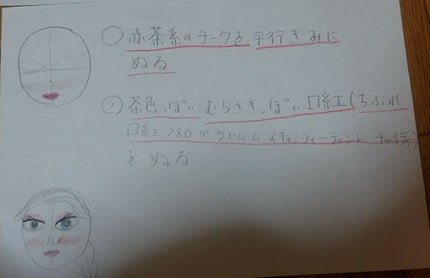 ① 赤茶系のチークを平行ぎみに
ぬる
② 茶色っぽいむらさきっぽい口紅(ちふれ
口紅 780か ムースキャンディーティント
をぬる